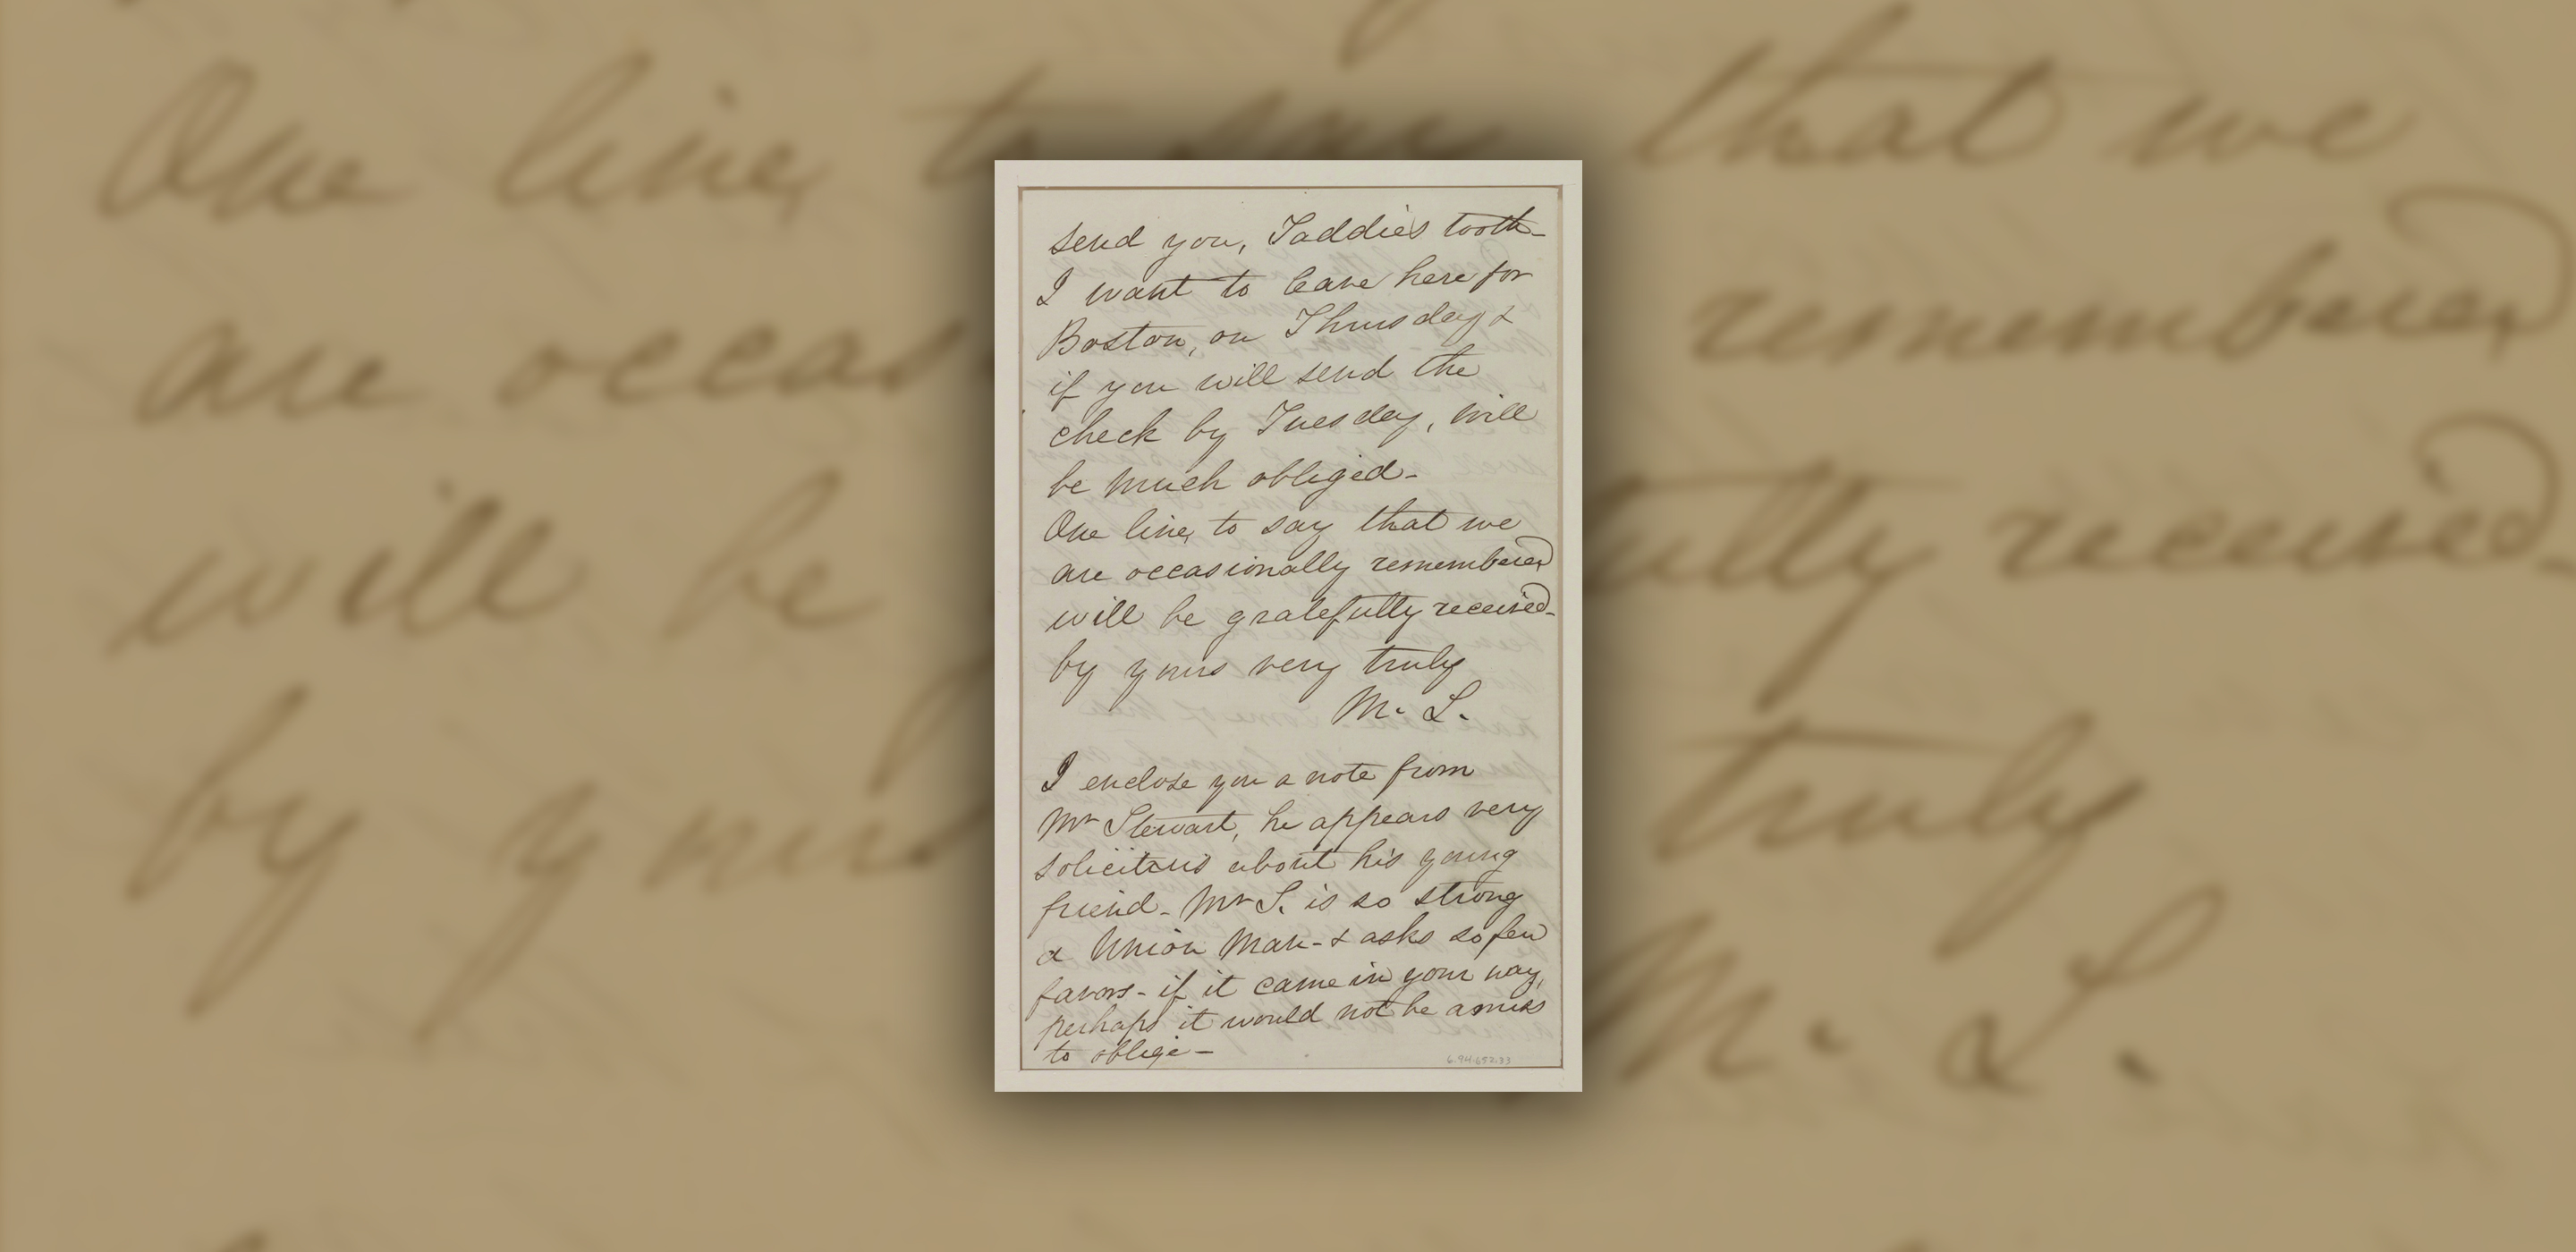 send you, Taddie's tooth-
I want to leave here for
Boston, on Thursday &
if you will send the
check by Tuesday, will
be much obliged-
One line, to say that we
are occasionally remembered
will be gratefully received-
by yours very truly
M. L.
I enclose you a note from
Mr Stewart, he appears very
solicitous about his young
friend- Mr S. is so strong
a Union Man- & asks so few
favors- if it came in your way,
perhaps it would not be amiss
to oblige-
6.94.652.33